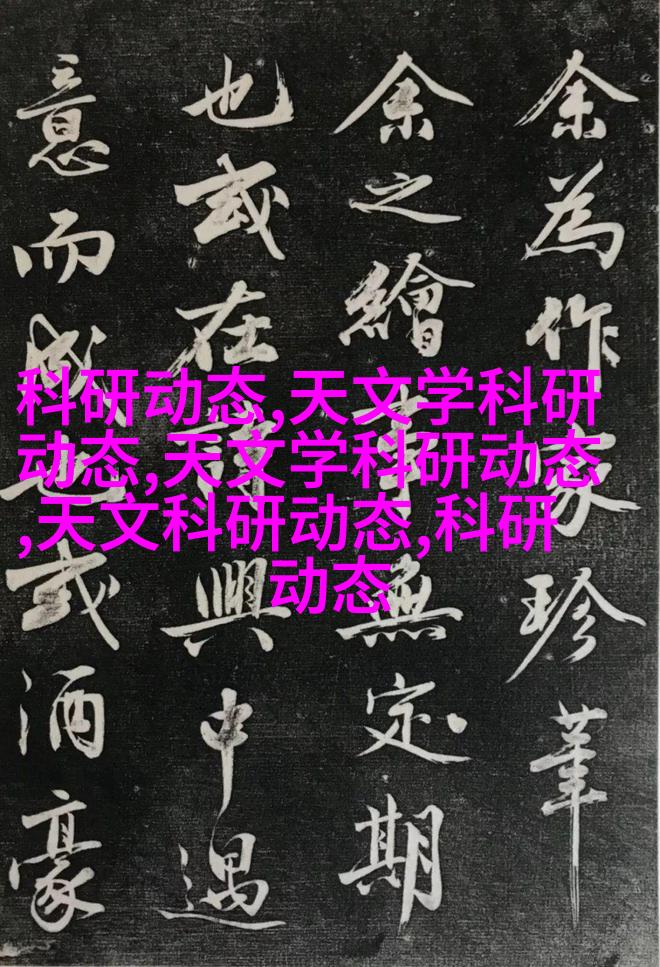 余為作家珍筆
余之繪事無定期
也或在詩興中遇
意而成也或酒豪
科研动态,天文学科研
动态,天文学科研动态
,天文科研动态,科研
动态